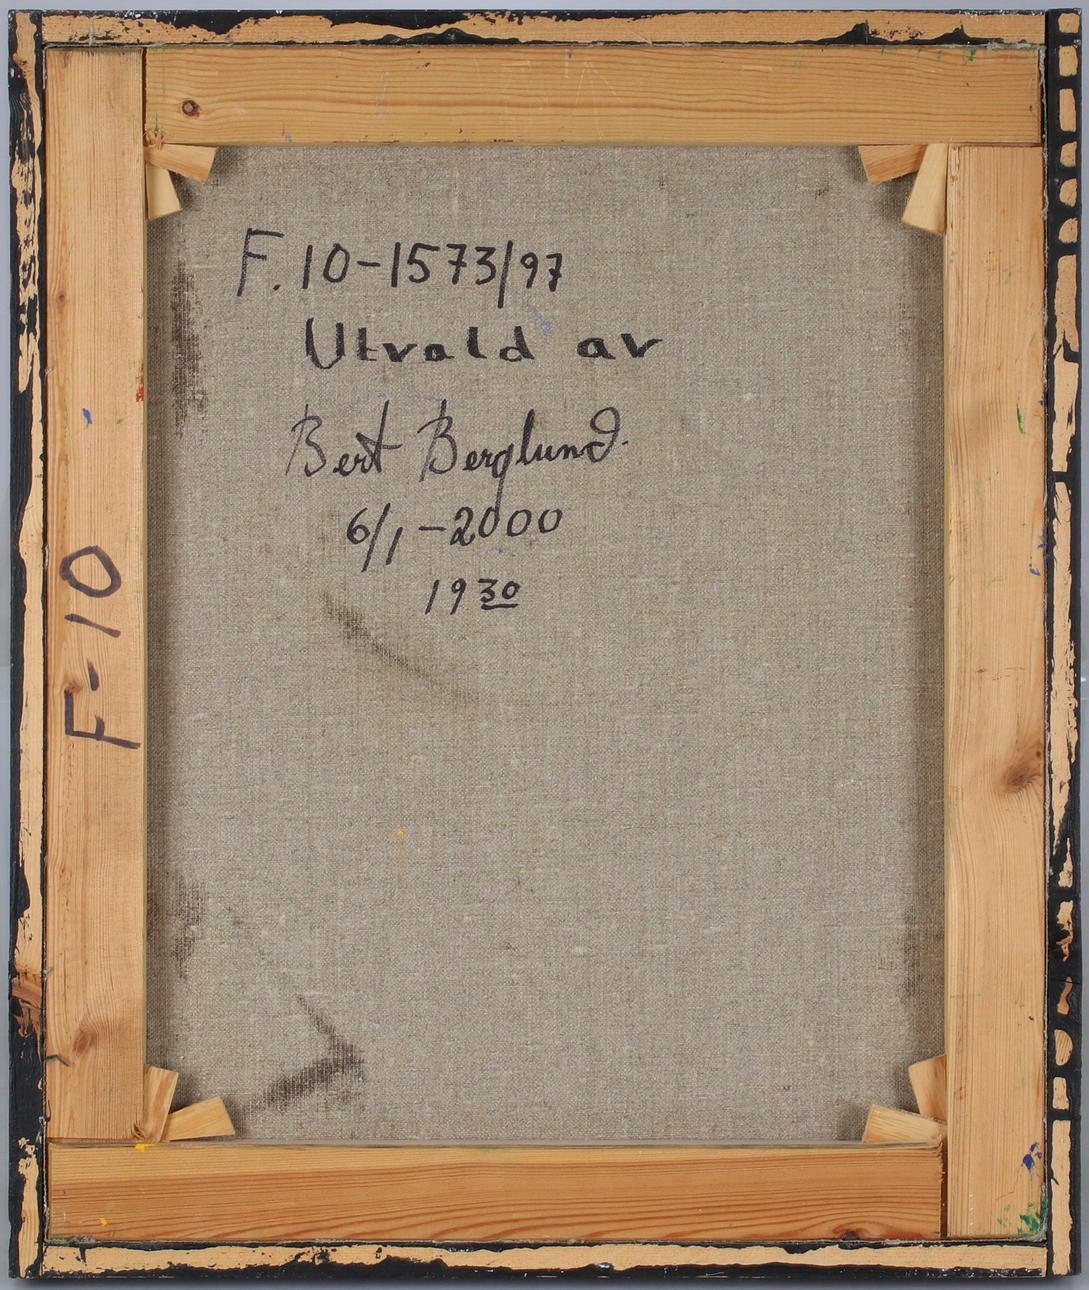 F. 10-1573/97
Utvald av
Bert Berglund.
6/1-2000
19 30
F-10